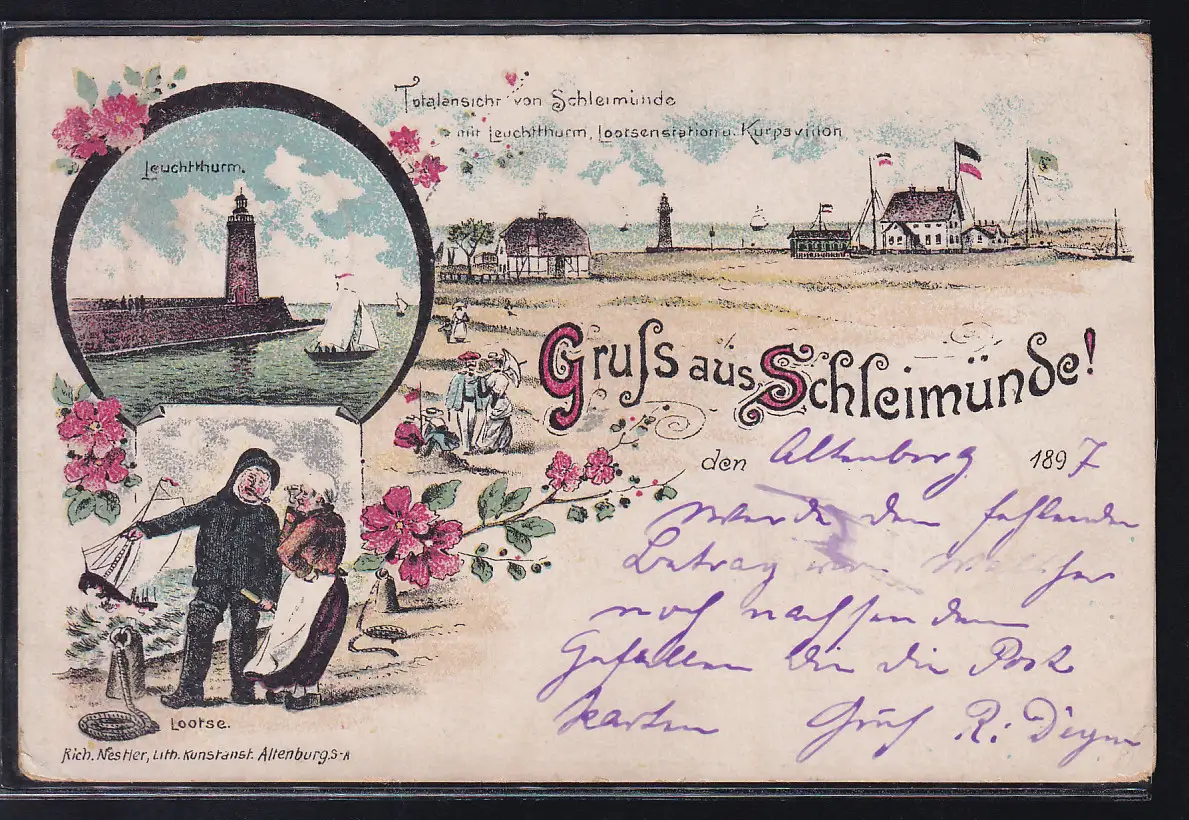 Totalansicht von Schleimünde
mit Leuchtthurm, Lootsenstation u. Kurpavillon
Leuchtthurm.
Gruß aus Schleimünde!
den Altenburg 1897
Werde den fehlenden
Betrag
noch nachsenden
Gefallen die Post
karten Gruß R.
Lootse.
Rich. Nestler, Lith. Kunstanst. Altenburg S-A